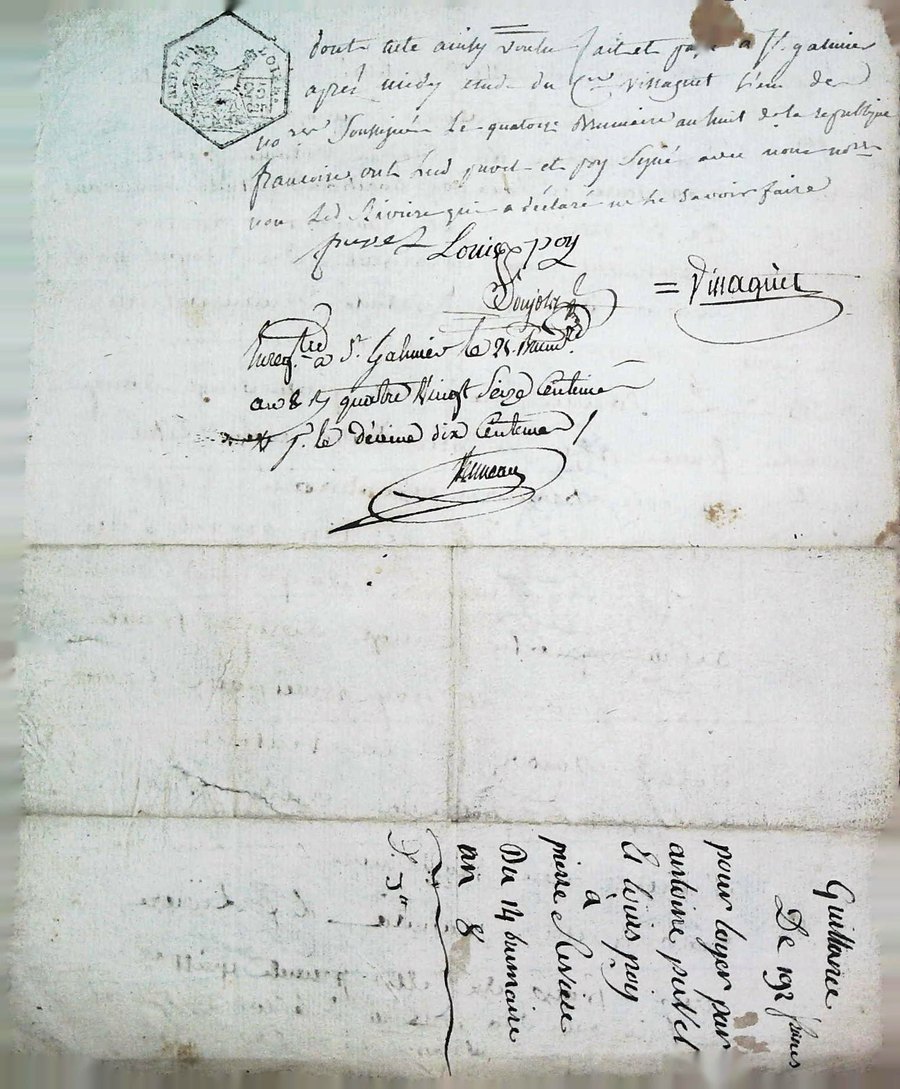 REP. FRA.
LOIRE
25
cen
dont acte ainsy voulu fait et passé a St. galmier
après midy etude du Cen. Vissaguet l'un des
nores Soussignés Le quatorze Brumaire an huit de la republique
francoise, ont Led puvel et poy Signé avec nous nores
non Led Riviere qui a déclaré ne le Savoir faire
puvel Louis poy
= Vissaguet
Enregtré à St. Galmier le 21. Brumre.
an 8 quatre Vingt Seize Centimes
p. le décime dix Centimes /
Quittance
De 192 francs
pour loyer par
antoine puvel
Et louis poy
à
pierre Riviere
Du 14 brumaire
an 8